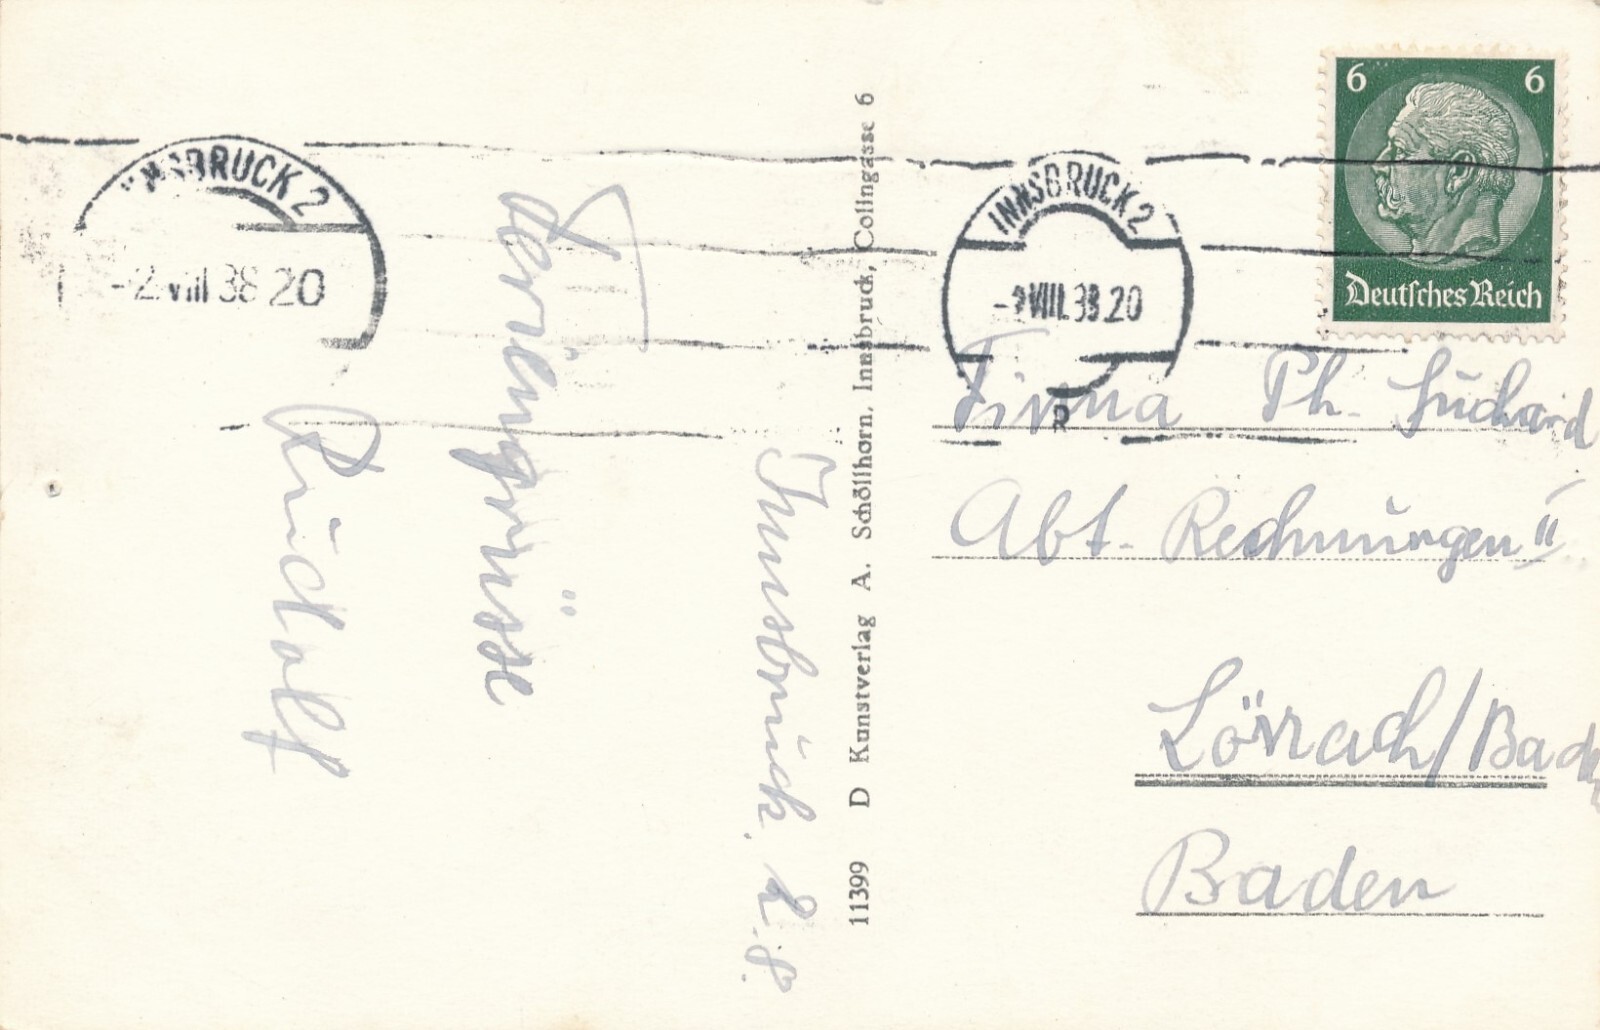 Innsbruck, 2.8.
Feriengrüsse
Rudolf
11399 D Kunstverlag A. Schöllhorn, Innsbruck, Colingasse 6
INNSBRUCK 2
-2.VIII.38 20
INNSBRUCK 2
-2.VIII.38.20
6 6
Deutsches Reich
Firma Ph. Suchard
Abt. Rechnungen II
Lörrach/Baden
Baden